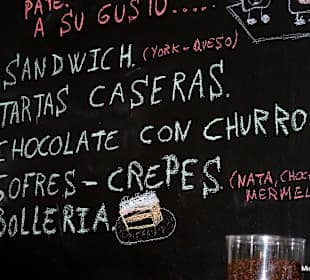 PATE.
A SU GUSTO.....
SANDWICH. (YORK-QUESO)
TARTAS CASERAS.
CHOCOLATE CON CHURRO
GOFRES-CREPES. (NATA, CHOC
MERMEL
BOLLERIA.